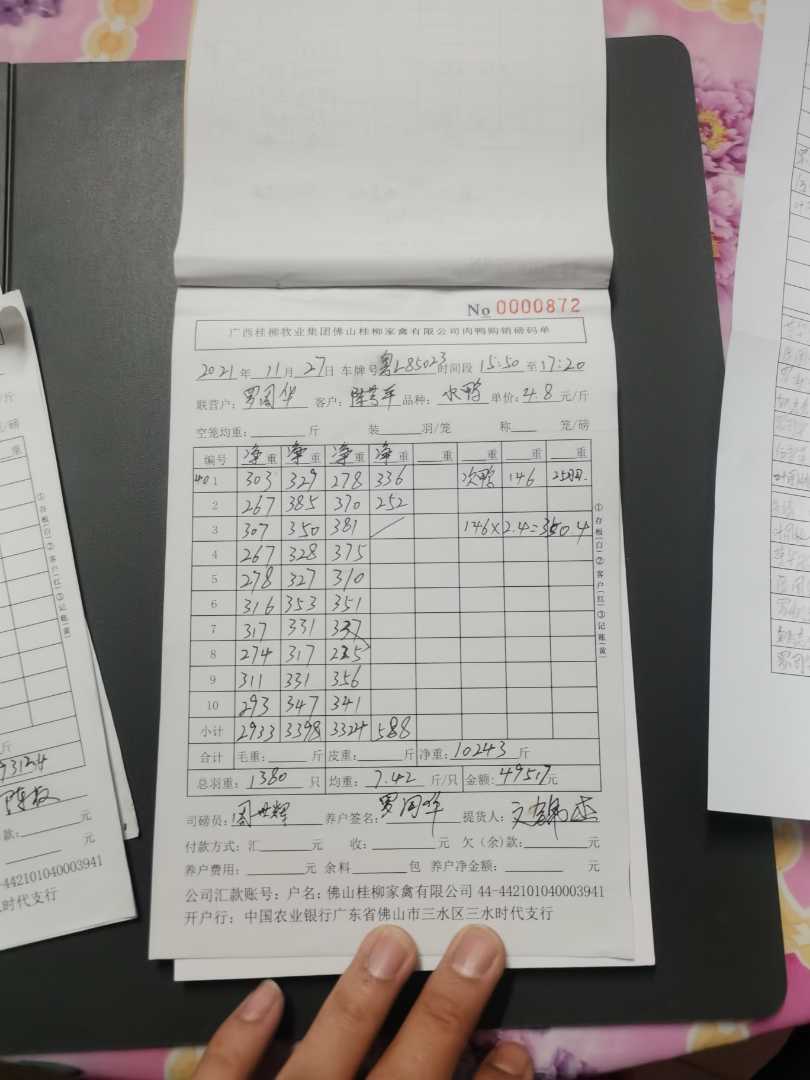 No 0000872
广西桂柳牧业集团佛山桂柳家禽有限公司肉鸭购销磅码单
2021年 11月 27日 车牌号粤L85023时间段 15:50 至17:20
联营户: 罗国华 客户: 品种: 水鸭 单价: 4.8 元/斤
空笼均重: 斤 装 羽/笼 称 笼/磅
编号 净重 净重 净重 净重 重 重 重 重
40 1 303 329 278 336 次鸭 146 25只
2 267 385 370 252
3 307 350 381 / 146×2.4=350.4
4 267 328 375
5 278 327 310
6 316 353 351
7 317 331 337
8 274 317 225
9 311 331 356
10 293 347 341
小计 2933 3398 3324 588
合计 毛重: 斤 皮重: 斤 净重: 10243 斤
总羽重: 1380 只 均重: 7.42 斤/只 金额: 49517元
司磅员: 周世辉 养户签名: 罗国华 提货人:
付款方式: 汇 元 收: 元 欠(余)款: 元
养户费用: 元 余料 包 养户净金额: 元
公司汇款账号: 户名: 佛山桂柳家禽有限公司 44-442101040003941
开户行: 中国农业银行广东省佛山市三水区三水时代支行
①存根(白)②客户(红)③记账(黄)
/斤
/磅
重
①存根(白)②客户(红)③记账(黄)
斤
款: 元
元
-442101040003941
时代支行